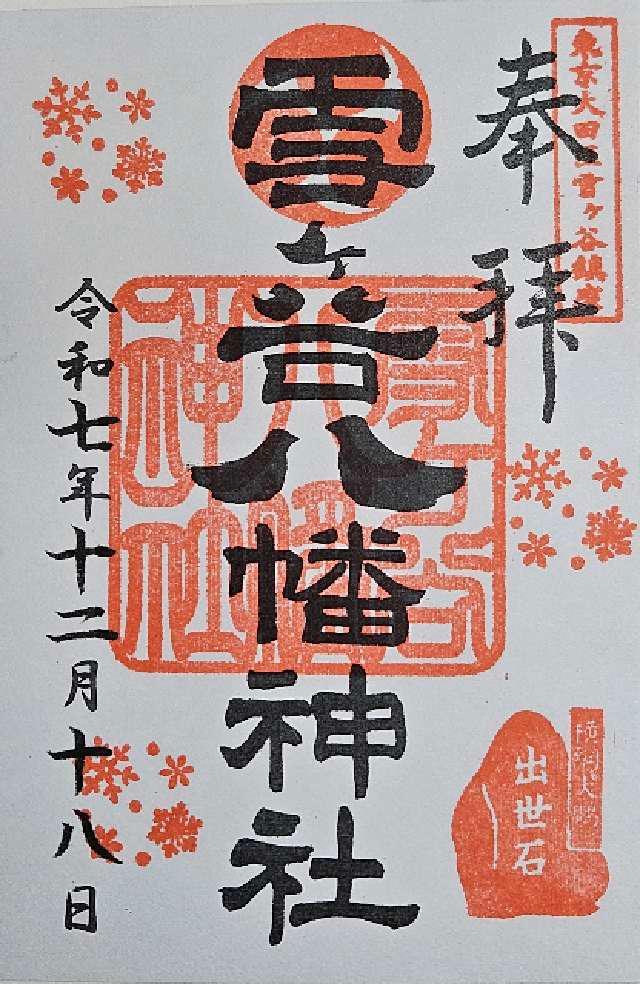 東京大田区雪ヶ谷鎮座
奉拝
雪ヶ谷八幡神社
雪ヶ谷八幡神社
令和七年十二月十八日
横綱大鵬
出世石